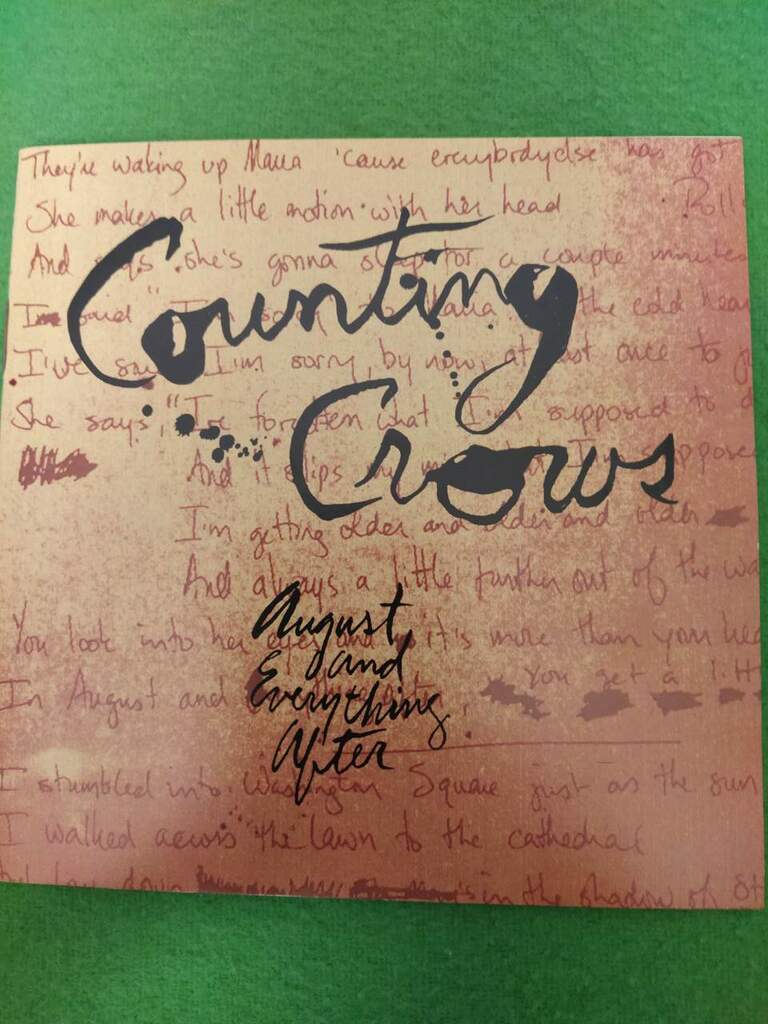 They're waking up Maria 'cause everybodyelse has got
She makes a little motion with her head
Roll
And says she's gonna sleep for a couple minutes
I said "I'm sorry to Maria the cold hear
I've say I'm sorry, by now, at least once to
She says, "I've forgotten what I'm supposed to d
And it slips my mind but I'm supposed
I'm getting older and older and older
And always a little further out of the wa
You look into her eyes and it's more than your hea
In August and Everything after, You get a litt
I stumbled into Washington Square just as the sun
I walked across the lawn to the cathedral
lay down in the shadow of St
Counting
Crows
August
and
Everything
After